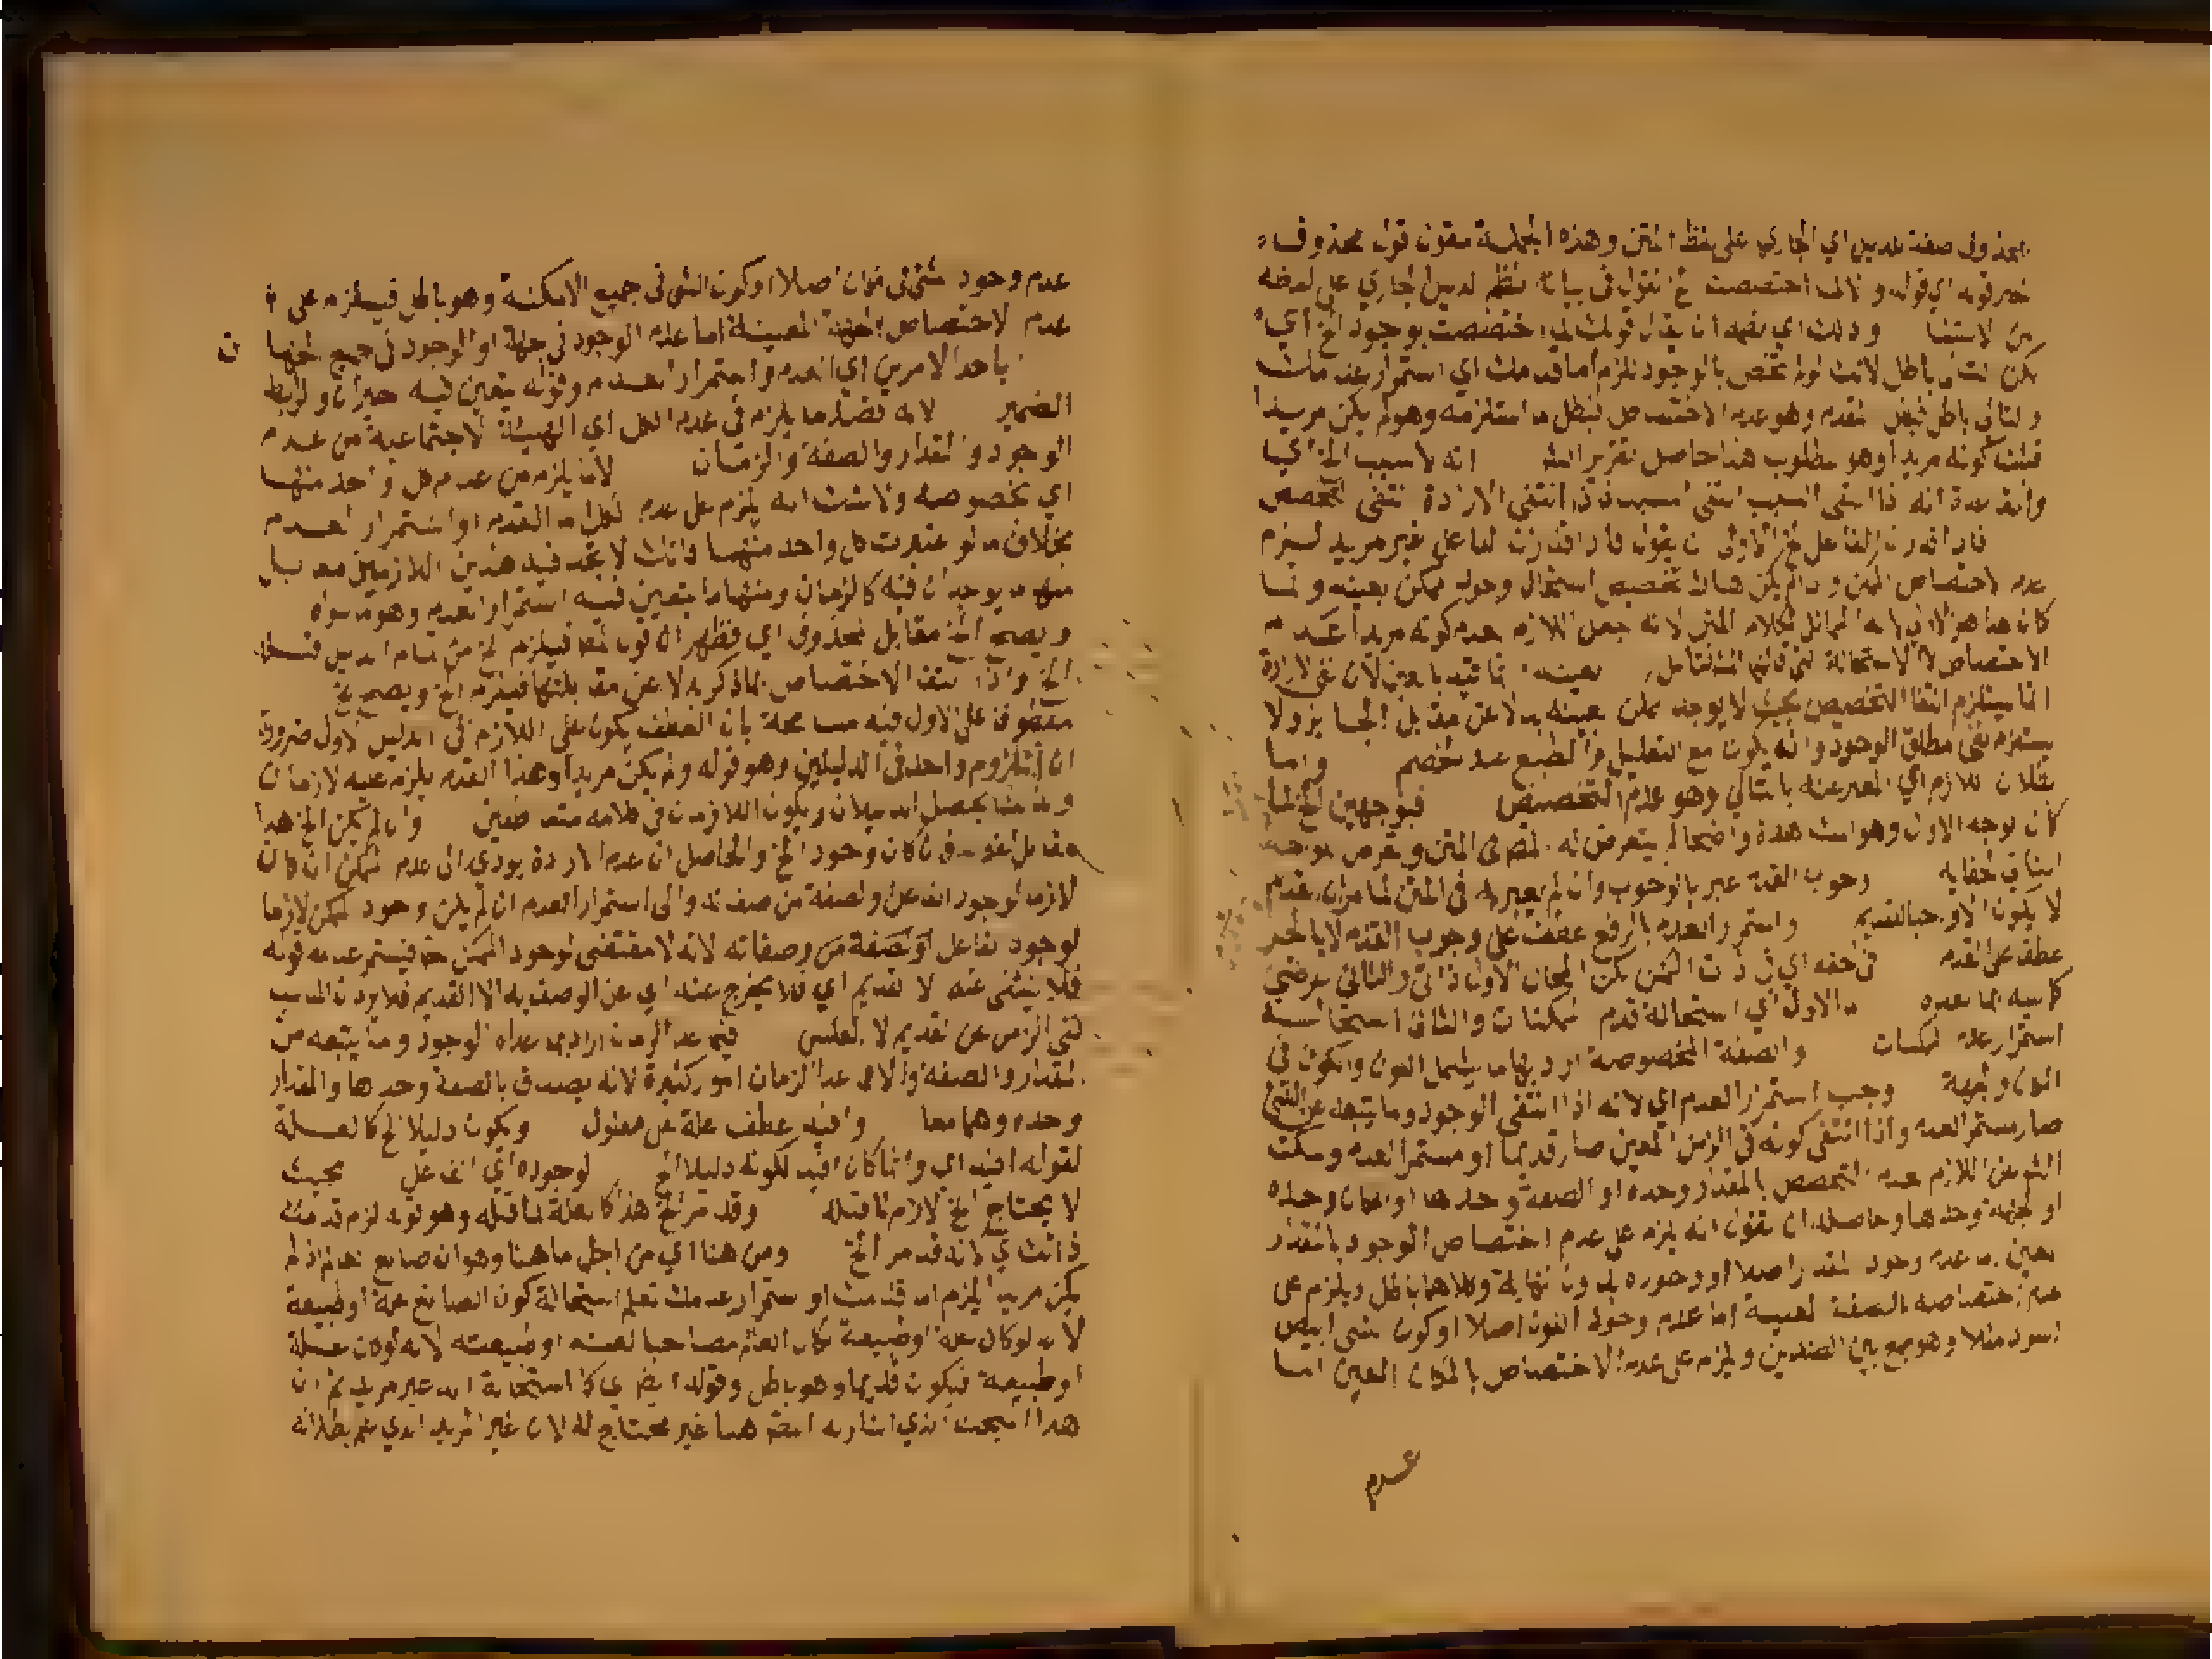 صفة للدليل اي الجاري على لفظ المتن وهذه الجملة مقول قول محذوف
خبر قوله اي قوله و اختصصت الخ نقول في بيانه نظم الدليل الجاري على لفظه
من الاستثنا وذلك اي نفيه ان يقال لو اختصصت بوجود الخ اي
لكن باطل لانك لو لم تختص بالوجود للزم اما قدمك اي استمرار عدمك
والتالي باطل فبطل المقدم وهو عدم الاختصاص فبطل ما استلزمه وهو لم يكن مريدا
فثبت كونه مريدا وهو المطلوب هذا حاصل تقرير انه لا سبب الخ اي
والقاعدة انه اذا انتفى السبب انتفى المسبب فاذا انتفت الارادة انتفى التخصيص
الفاعل الخ الاولى ان يقول فاذا قدرت الفاعل غير مريد لزم
عدم اختصاص الممكن واذا لم يكن هناك تخصيص استحال وجود ممكن بعينه وانما
كان هذا هو الاولى لانه المماثل لكلام المتن لانه جعل اللازم لعدم كونه مريدا عدم
الاختصاص لا الاستحالة التي قالها فتامل بعينه انما قيد بالعين لان نفي الارادة
انما يستلزم انتفا التخصيص بحيث لا يوجد ممكن بعينه بدلا عن مقابل الجايز ولا
يستلزم نفي مطلق الوجود وانه يكون مع التعليل والطبع عند الخصم واما
بطلان اللازم اي المعبر عنه بالتالي وهو عدم التخصيص فبوجهين الخ لما
كان الوجه الاول وهو واضحا لم يتعرض له المص في المتن وتعرض للوجه
الثاني لخفايه وجوب القدم عبر بالوجوب وان لم يعبر به في المتن لما مر ان القديم
لا يكون الا واجبا لقديم واستمرار العدم بالرفع عطف على وجوب القدم لا بالجر
عطف على القدم في حقه اي في ذات الممكن لكن المحال الاول ذاتي والثاني عرضي
كما سيه بما بعده الاول اي استحالة قدم الممكنات والثاني استحالة
استمرار عدم الممكنات والصفة المخصوصة اراد بها ما يشمل اللون والكون في
المكان والجهة وجب استمرار العدم اي لانه اذا انتفى الوجود وما يتبعه عن الشي
صار مستمر العدم واذا انتفى كونه في الزمن المعين صار قديما او مستمر العدم وسكت
الش عن اللازم لعدم التخصص بالمقدار وحده او الصفة وحدها او المكان وحده
او الجهة وحدها وحاصله ان تقول انه يلزم على عدم اختصاص الوجود بالمقدار
المعين اما عدم وجود المقدار اصلا او وجوده بدون نهاية وكلاهما باطل ويلزم على
عدم اختصاصه بالصفة المعينة اما عدم وجود اللون اصلا او كون الشي ابيض
اسود مثلا وهو جمع بين الضدين ويلزم على عدم الاختصاص بالمكان المعين اما
عدم
عدم وجود الشي في مكان اصلا او كون الشي في جميع الامكنة وهو باطل فيلزم على
عدم الاختصاص بالجهة المعينة اما عدم الوجود في جهة او الوجود في جميع الجها ت
باحد الامرين اي العدم واستمرار العدم وقوله يتعين فيه خبر ان والرابط
الضمير لانه قصد ما يلزم في عدم الكل اي الهيئة الاجتماعية من عدم
الوجود والمقدار والصفة والزمان لان يلزم من عدم كل واحد منها
اي بخصوصه ولا شك انه يلزم على عدم الكل اما القدم او استمرار العدم
بخلاف ما لو اعتبرت كل واحد منها فانك لا تجد فيه هذين اللازمين معا بل
منها ما يوجد ان فيه كالزمان ومنها ما يتعين فيه استمرار العدم وهو ما سواه
ويصح الخ مقابل لمحذوف اي فظهر ان قول فيلزم الخ من تمام الدليل قبله
الخ واذا انتفا الاختصاص بما ذكر بدلا عن مقابلتها فيلزم الخ ويصح الخ
معطوف على الاول فيه مسامحة بان العطف يكون على اللازم في الدليل الاول ضرورة
ان الملزوم واحد في الدليلين وهو قوله ولم يكن مريدا وهذا المقدم يلزم عليه لازمان
يحصل الدليلان ويكون اللازمان في كلامه متعاطفين وان لم يكن الخ هذا
مقابل لقوله فان كان وجود الخ والحاصل ان عدم الارادة يودي الى عدم الممكن ان كان
لازما لوجود الفاعل او لصفة من صفاته والى استمرار العدم ان لم يكن وجود الممكن لازما
لوجود الفاعل او لصفة من صفاته لانه لا مقتضى لوجود الممكن ح فيستمر عدمه قوله
فلا ينتفى عنه لا القديم اي فلا يخرج عنه اي عن الوصف به الا القديم فلا يرد ان المناسب
نفي الزمن عن القديم لا العكس فيما عدا الزمان اراد بما عداه الوجود وما يتبعه من
المقدار والصفة اذ الال عدا الزمان امور كثيرة لانه يصدق بالصفة وحدها والمقدار
وحده وهما معا وافيد عطف علة على معلول ويكون دليلا الخ كالعلة
لقوله افيد اي وانما كان افيد لكونه دليلا الخ لوجوده اي الفاعل بحيث
لا يحتاج الخ لازم لما قبله وقد مر الخ هذا كالعلة لما قبله وهو قوله لزم قدمك
لانه قد مر الخ ومن هنا اي من اجل ما هنا وهو ان صانع العالم اذا لم
يكن مريدا يلزم اما قدمك او استمرار عدمك تعلم استحالة كون الصانع علة او طبيعة
لانه لو كان علة او طبيعة لكان العالم مصاحبا لعلته او طبيعته لانه لو كان علة
او طبيعة فيكون قديما وهو باطل وقوله ايضا اي كاستحالة انه غير مريد ثم ان
هذا المبحث الذي اشار به المص هنا غير محتاج له لان غير المريد الذي علم بطلانه